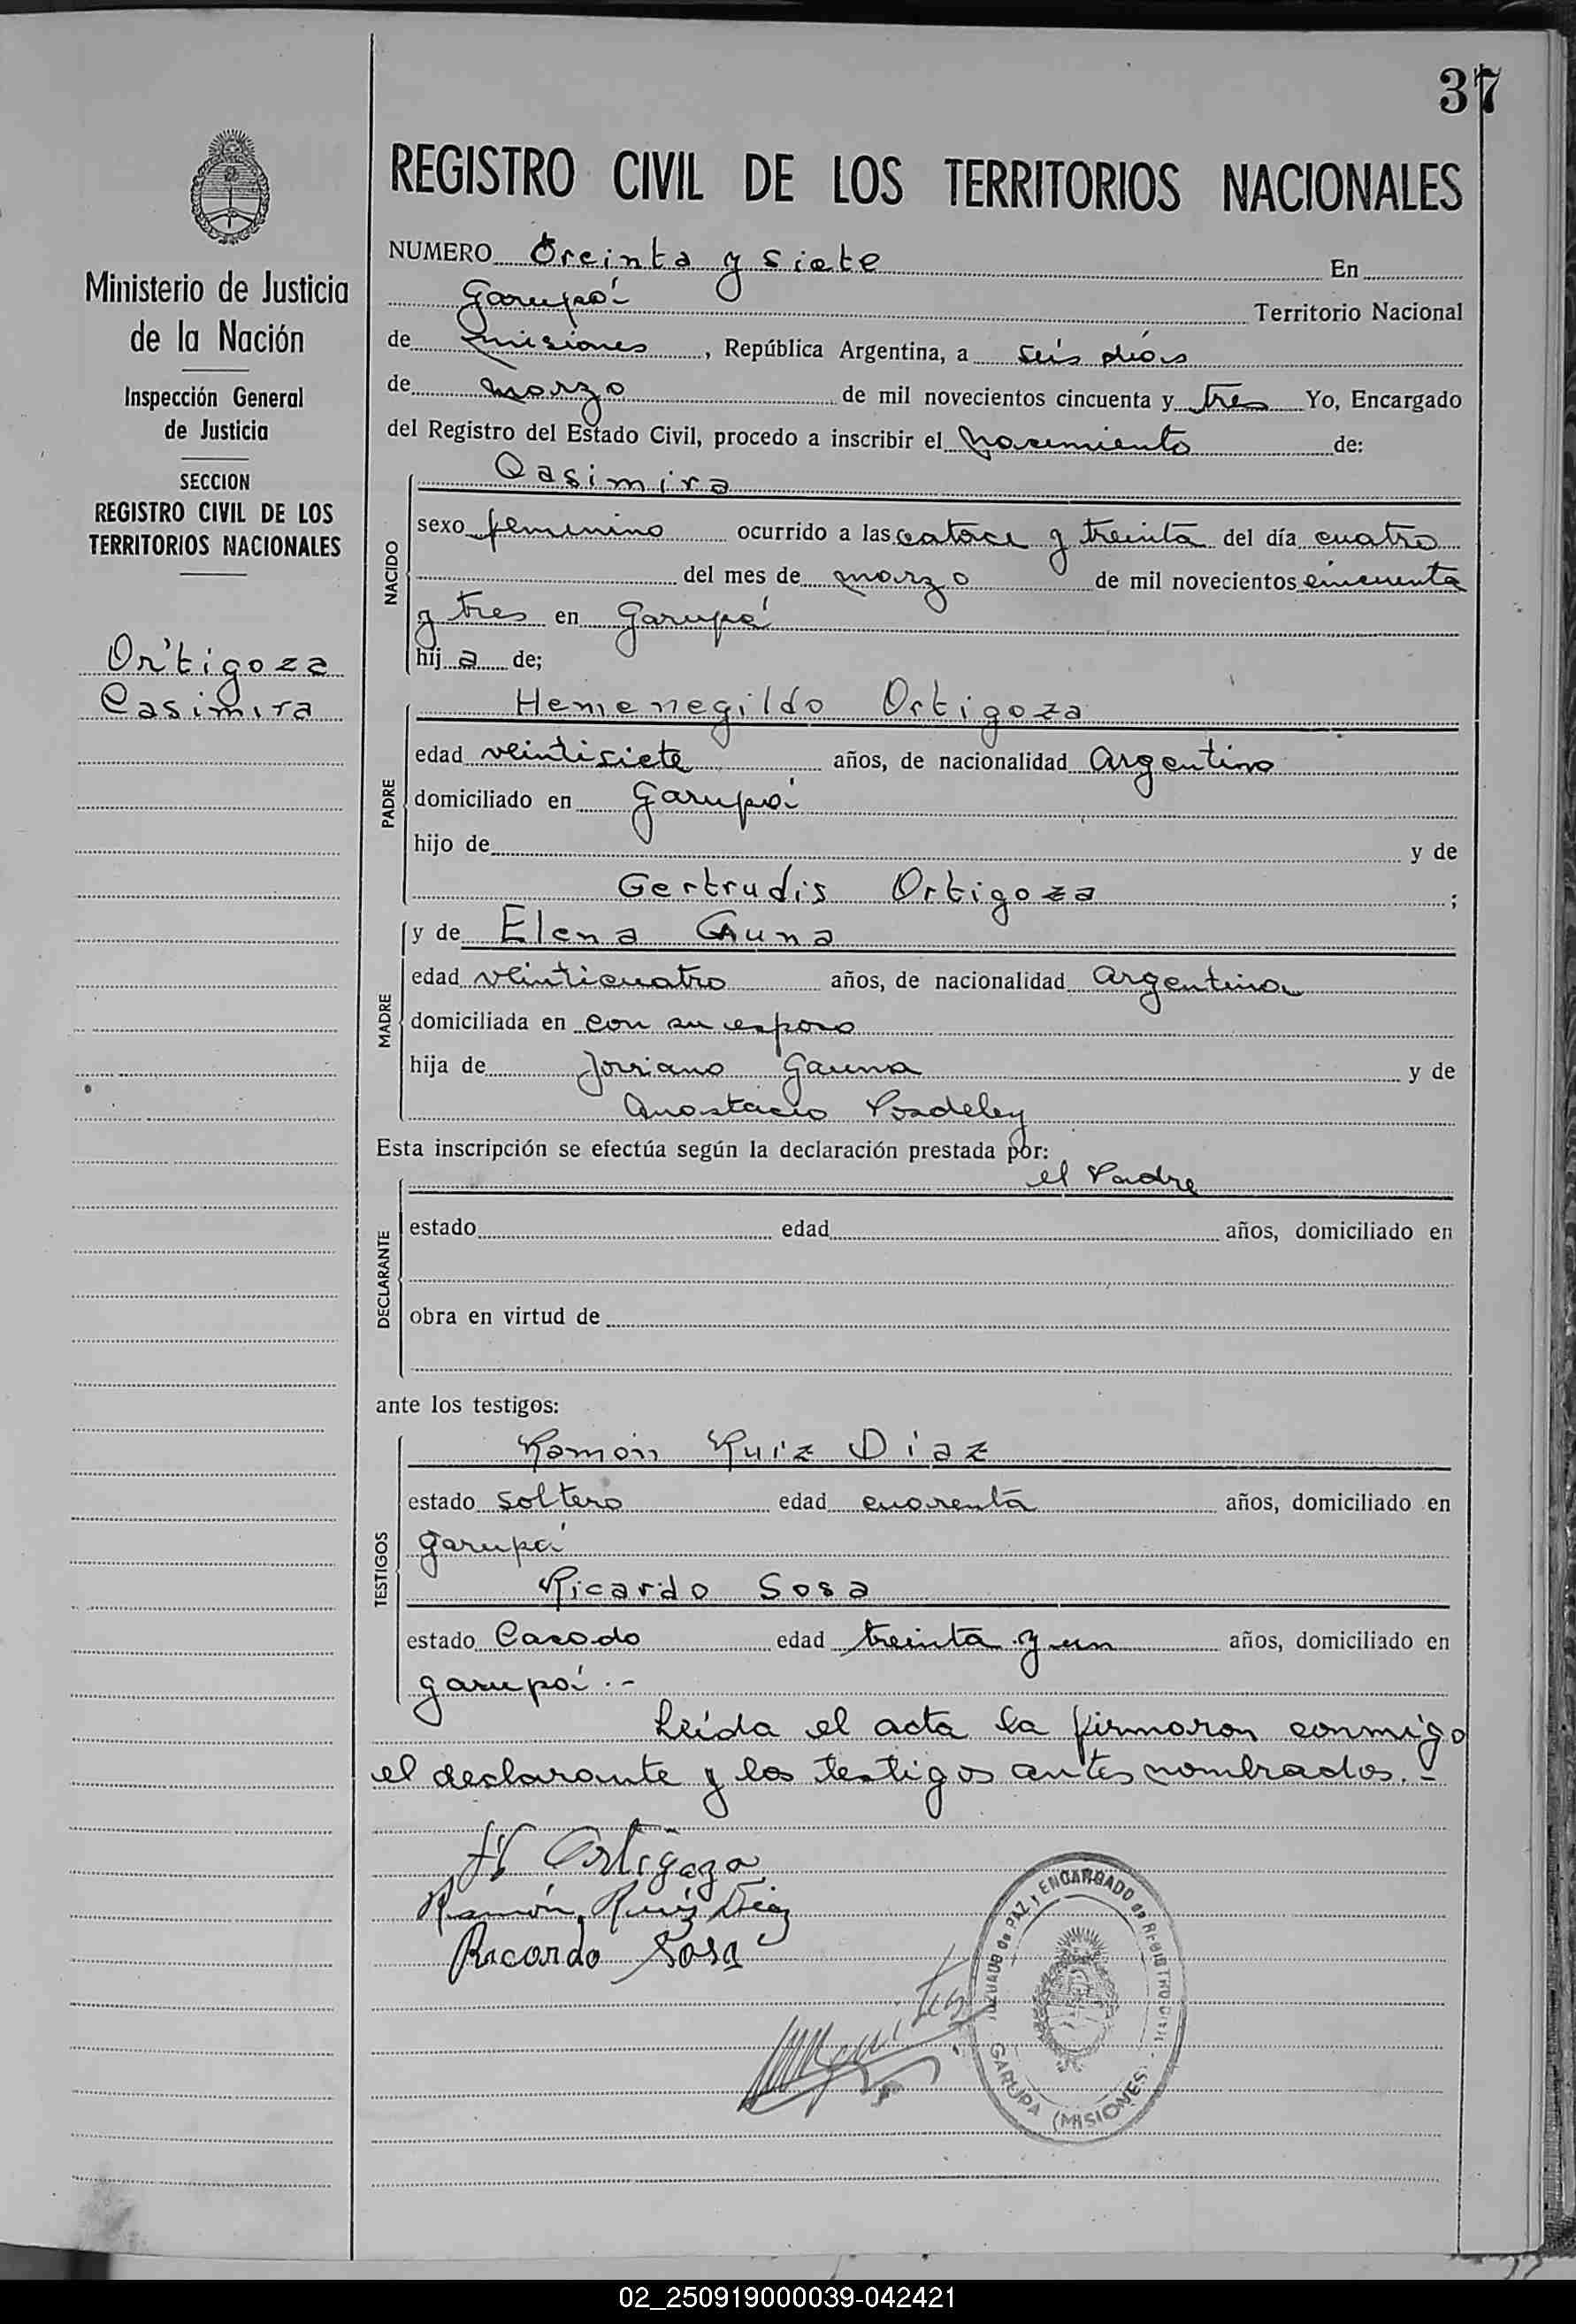 37
REGISTRO CIVIL DE LOS TERRITORIOS NACIONALES
Ministerio de Justicia
de la Nación
Inspección General
de Justicia
SECCION
REGISTRO CIVIL DE LOS
TERRITORIOS NACIONALES
Ortigoza
Casimira
NUMERO Treinta y siete En
Garupá Territorio Nacional
de Misiones, República Argentina, a seis días
de marzo de mil novecientos cincuenta y tres Yo, Encargado
del Registro del Estado Civil, procedo a inscribir el nacimiento de:
NACIDO
Casimira
sexo femenino ocurrido a las catorce y treinta del día cuatro
del mes de marzo de mil novecientos cincuenta
y tres en Garupá
hija de;
PADRE
Hemenegildo Ortigoza
edad veintisiete años, de nacionalidad Argentino
domiciliado en Garupá
hijo de y de
Gertrudis Ortigoza ;
MADRE
y de Elena Gauna
edad veinticuatro años, de nacionalidad Argentina
domiciliada en con su esposo
hija de Gauna y de
Esta inscripción se efectúa según la declaración prestada por:
DECLARANTE
el Padre
estado edad años, domiciliado en
obra en virtud de
ante los testigos:
TESTIGOS
Ramón Ruiz Diaz
estado soltero edad cuarenta años, domiciliado en
Garupá
Ricardo Sosa
estado Casado edad treinta y un años, domiciliado en
garupá.-
Leída el acta la firmaron conmigo
el declarante y los testigos antes nombrados.-
H Ortigoza
Ramón Ruiz Diaz
Ricardo Sosa
JUZGADO de PAZ y ENCARGADO de REGISTRO CIVIL
GARUPA (MISIONES)
02_250919000039-042421